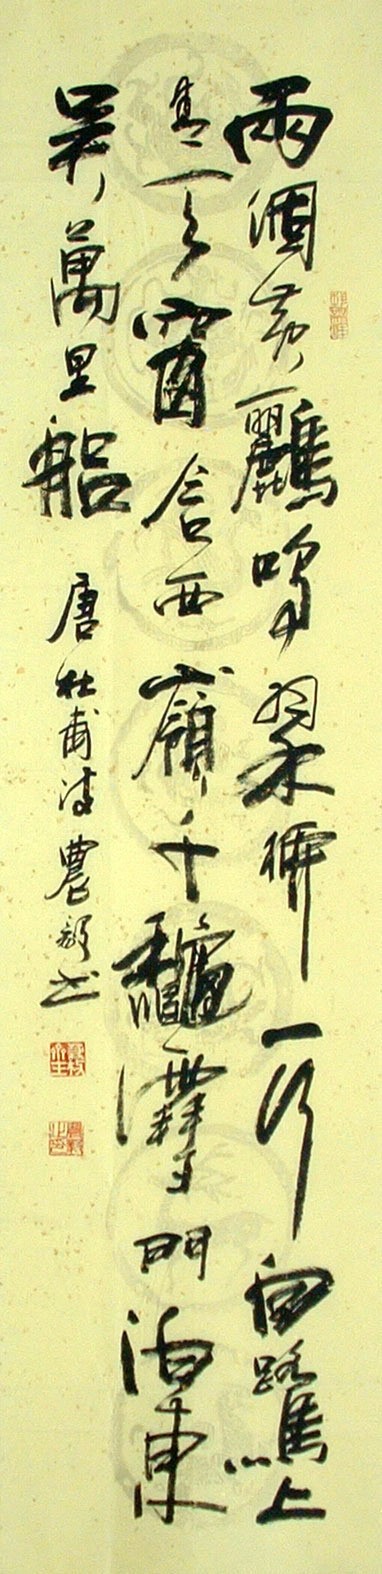 兩個黃鸝鳴翠柳一行白鷺上
青天窗含西嶺千龝雪門泊東
吳萬里船
唐杜甫詩農書